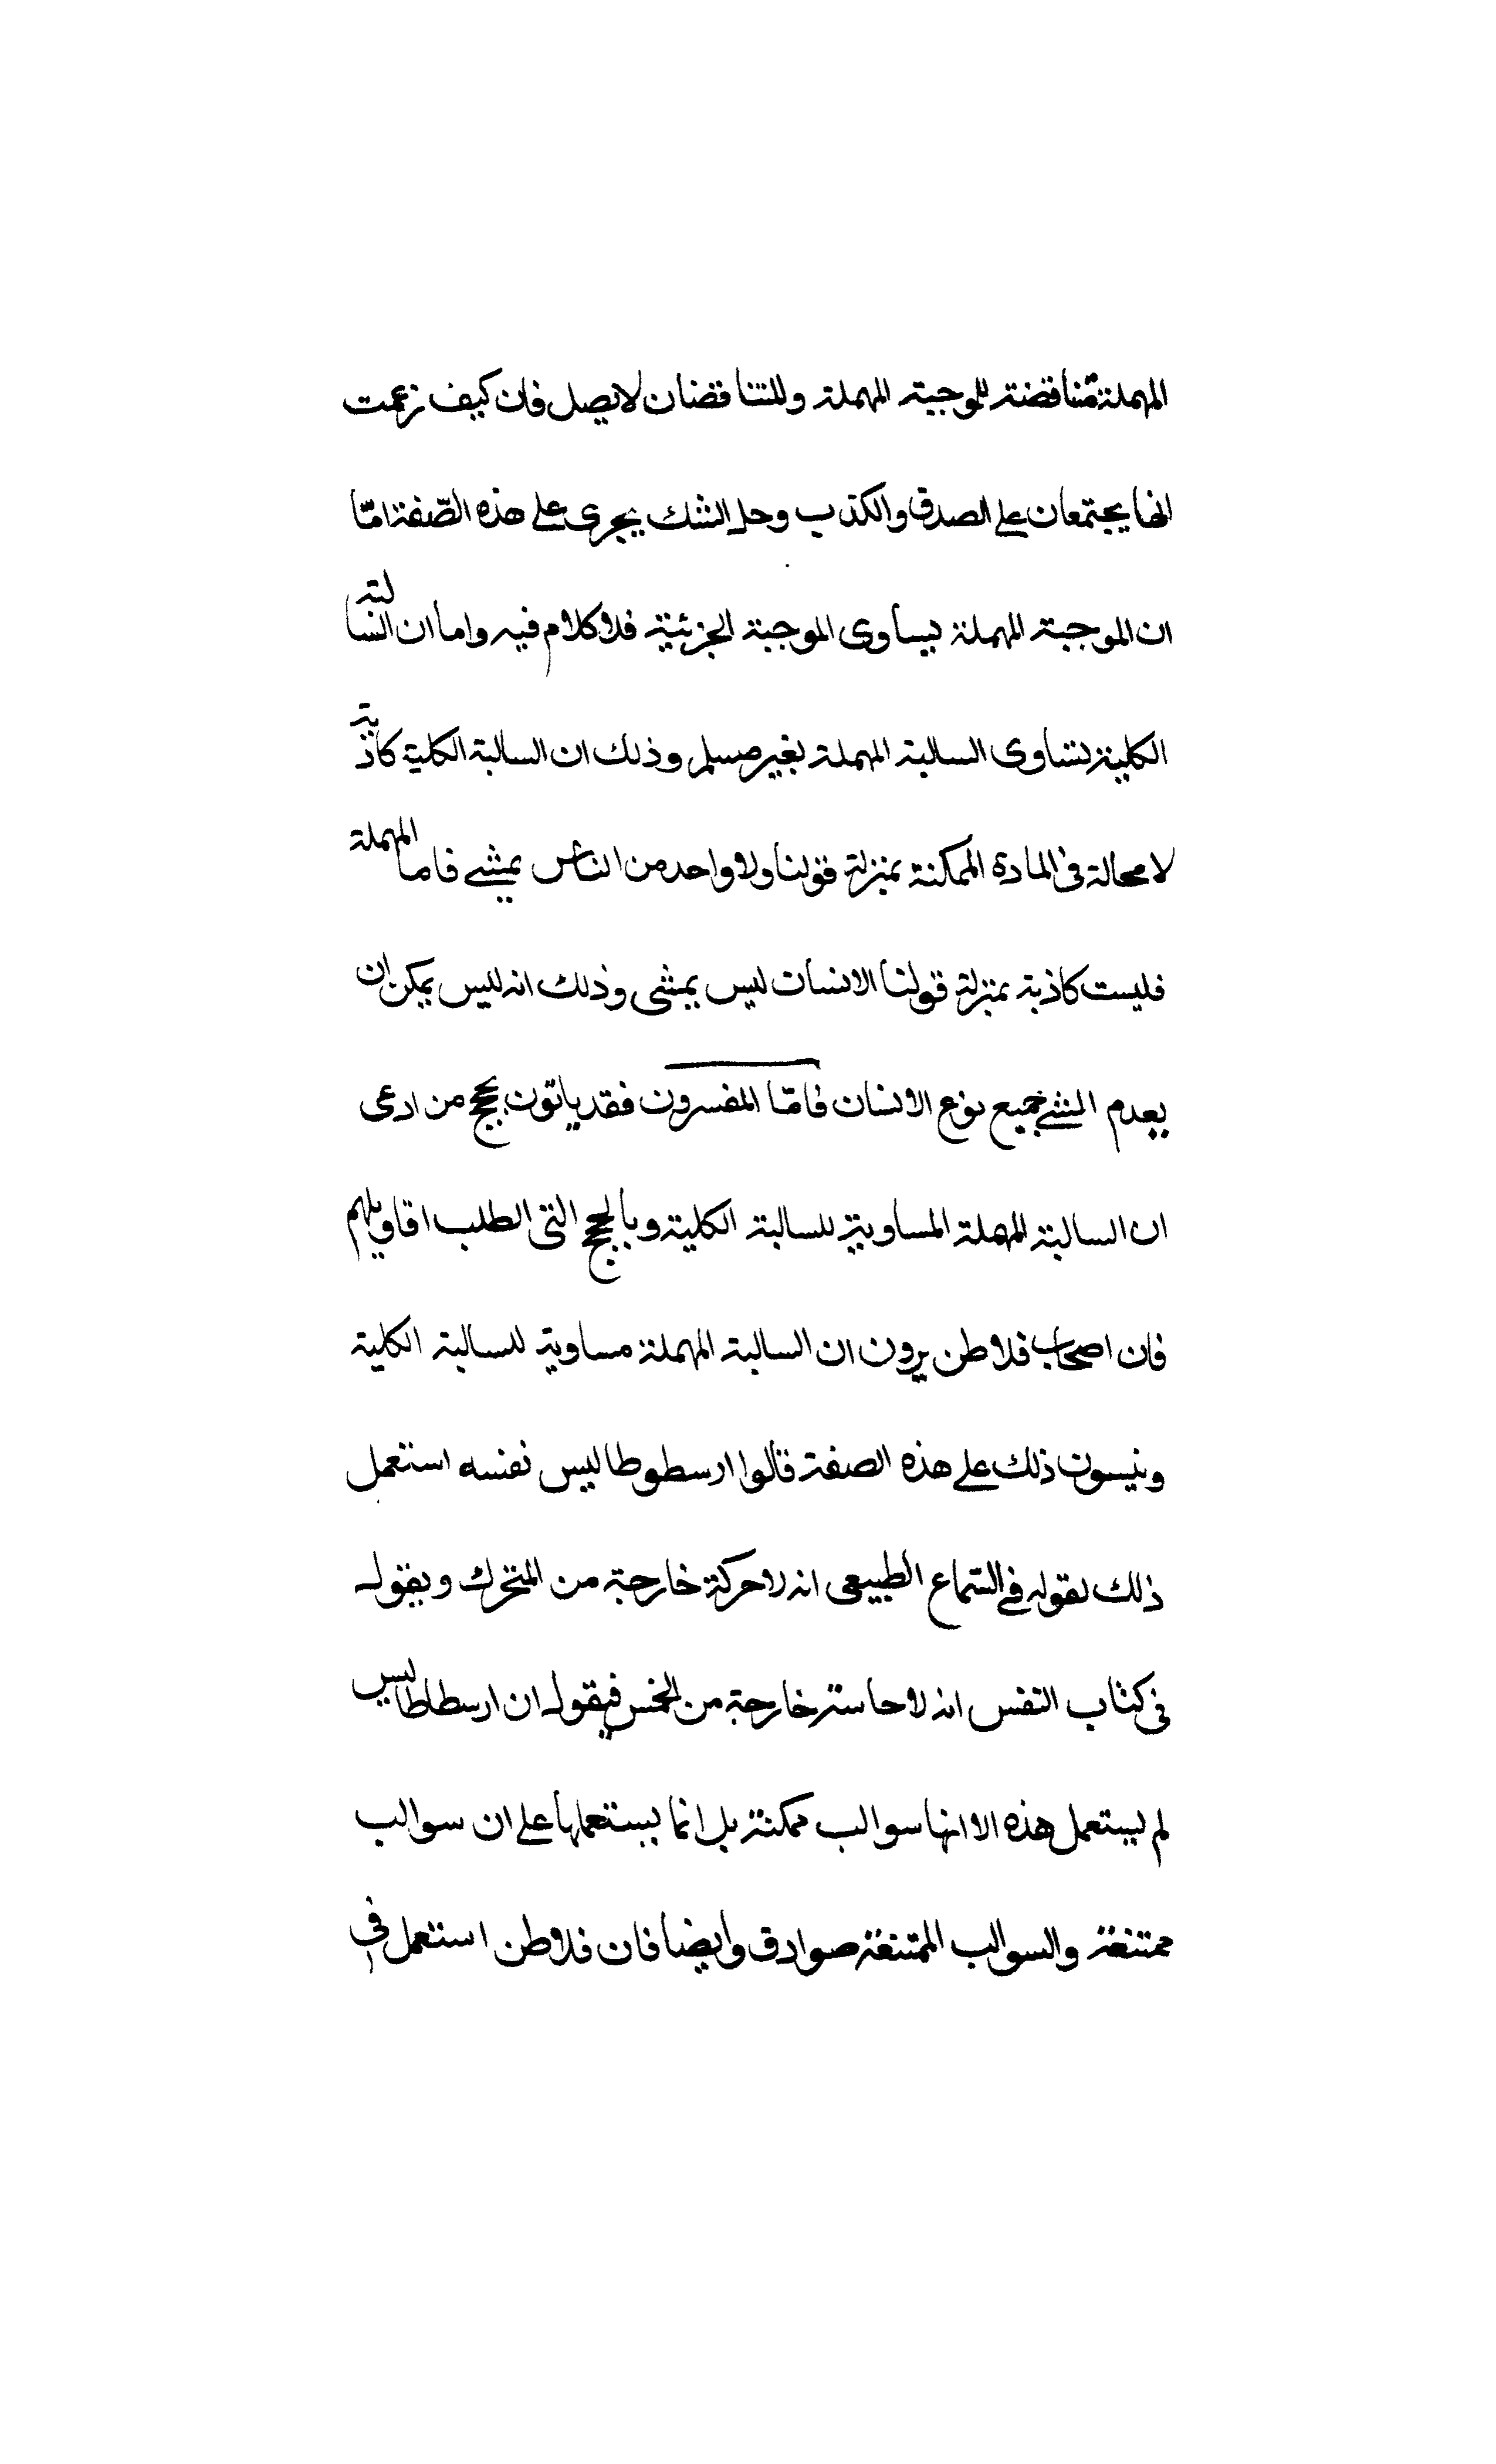 المهملة مناقضة للموجبة المهملة والمتناقضان لا يصل فان كيف زعمت
انها يجتمعان على الصدق والكذب وحل الشك يجرى على هذه الصّفة امّا
ان الموجبة المهملة يساوى الموجبة الجزئية فلا كلام فيه واما ان السالبة
الكلية تساوى السالبة المهملة بغير مسلم وذلك ان السالبة الكلية كاذبة
لا محالة فى المادة الممكنة بمنزلة قولنا ولا واحد من الناس يمشى فاما المهملة
فليست كاذبة بمنزلة قولنا الانسان ليس يمشى وذلك انه ليس يمكن ان
يعدم المشى جميع نوع الانسان فامّا المفسرون فقد ياتون بحجج من ادعى
ان السالبة المهملة المساوية للسالبة الكلية وبالحجج التى الطلب اقاويلهم
فان اصحاب فلاطن يرون ان السالبة المهملة مساوية للسالبة الكلية
ذلك على هذه الصفة قالوا ارسطوطاليس نفسه استعمل
ذلك بقوله فى السّماع الطبيعى انه لا حركة خارجة من المتحرك وبقوله
فى كتاب النفس انه لا حاسة خارجة من الخمس فيقول ان ارسطاطاليس
لم يستعمل هذه الا انها سوالب ممكنة بل انما يستعملها على ان سوالب
ممتنعة والسوالب الممتنعة صوادق وايضا فان فلاطن استعمل فى